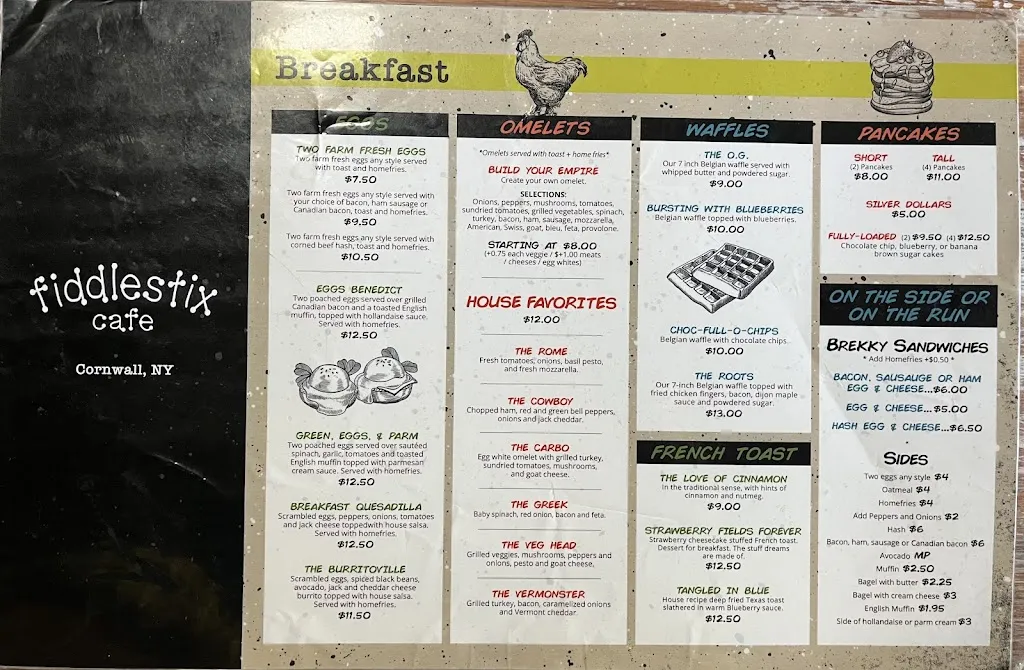 fiddlestix
cafe
Cornwall, NY
Breakfast
EGGS
TWO FARM FRESH EGGS
Two farm fresh eggs any style served
with toast and homefries.
$7.50
Two farm fresh eggs any style served with
your choice of bacon, ham sausage or
Canadian bacon, toast and homefries.
$9.50
Two farm fresh eggs any style served with
corned beef hash, toast and homefries.
$10.50
EGGS BENEDICT
Two poached eggs served over grilled
Canadian bacon and a toasted English
muffin, topped with hollandaise sauce.
Served with homefries.
$12.50
GREEN, EGGS, & PARM
Two poached eggs served over sautéed
spinach, garlic, tomatoes and toasted
English muffin topped with parmesan
cream sauce. Served with homefries.
$12.50
BREAKFAST QUESADILLA
Scrambled eggs, peppers, onions, tomatoes
and jack cheese toppedwith house salsa.
Served with homefries.
$12.50
THE BURRITOVILLE
Scrambled eggs, spiced black beans,
avocado, jack and cheddar cheese
burrito topped with house salsa.
Served with homefries.
$11.50
OMELETS
*Omelets served with toast + home fries*
BUILD YOUR EMPIRE
Create your own omelet.
SELECTIONS:
Onions, peppers, mushrooms, tomatoes,
sundried tomatoes, grilled vegetables, spinach,
turkey, bacon, ham, sausage, mozzarella,
American, Swiss, goat, bleu, feta, provolone.
STARTING AT $8.00
(+0.75 each veggie / $+1.00 meats
/ cheeses / egg whites)
HOUSE FAVORITES
$12.00
THE ROME
Fresh tomatoes, onions, basil pesto,
and fresh mozzarella.
THE COWBOY
Chopped ham, red and green bell peppers,
onions and jack cheddar.
THE CARBO
Egg white omelet with grilled turkey,
sundried tomatoes, mushrooms,
and goat cheese.
THE GREEK
Baby spinach, red onion, bacon and feta.
THE VEG HEAD
Grilled veggies, mushrooms, peppers and
onions, pesto and goat cheese.
THE VERMONSTER
Grilled turkey, bacon, caramelized onions
and Vermont cheddar.
WAFFLES
THE O.G.
Our 7 inch Belgian waffle served with
whipped butter and powdered sugar.
$9.00
BURSTING WITH BLUEBERRIES
Belgian waffle topped with blueberries.
$10.00
CHOC-FULL-O-CHIPS
Belgian waffle with chocolate chips.
$10.00
THE ROOTS
Our 7-inch Belgian waffle topped with
fried chicken fingers, bacon, dijon maple
sauce and powdered sugar.
$13.00
FRENCH TOAST
THE LOVE OF CINNAMON
In the traditional sense, with hints of
cinnamon and nutmeg.
$9.00
STRAWBERRY FIELDS FOREVER
Strawberry cheesecake stuffed French toast.
Dessert for breakfast. The stuff dreams
are made of.
$12.50
TANGLED IN BLUE
House recipe deep fried Texas toast
slathered in warm Blueberry sauce.
$12.50
PANCAKES
SHORT TALL
(2) Pancakes (4) Pancakes
$8.00 $11.00
SILVER DOLLARS
$5.00
FULLY-LOADED (2) $9.50 (4) $12.50
Chocolate chip, blueberry, or banana
brown sugar cakes
ON THE SIDE OR
ON THE RUN
BREKKY SANDWICHES
* Add Homefries +$0.50 *
BACON, SAUSAUGE OR HAM
EGG & CHEESE...$6.00
EGG & CHEESE...$5.00
HASH EGG & CHEESE...$6.50
SIDES
Two eggs any style $4
Oatmeal $4
Homefries $4
Add Peppers and Onions $2
Hash $6
Bacon, ham, sausage or Canadian bacon $6
Avocado MP
Muffin $2.50
Bagel with butter $2.25
Bagel with cream cheese $3
English Muffin $1.95
Side of hollandaise or parm cream $3